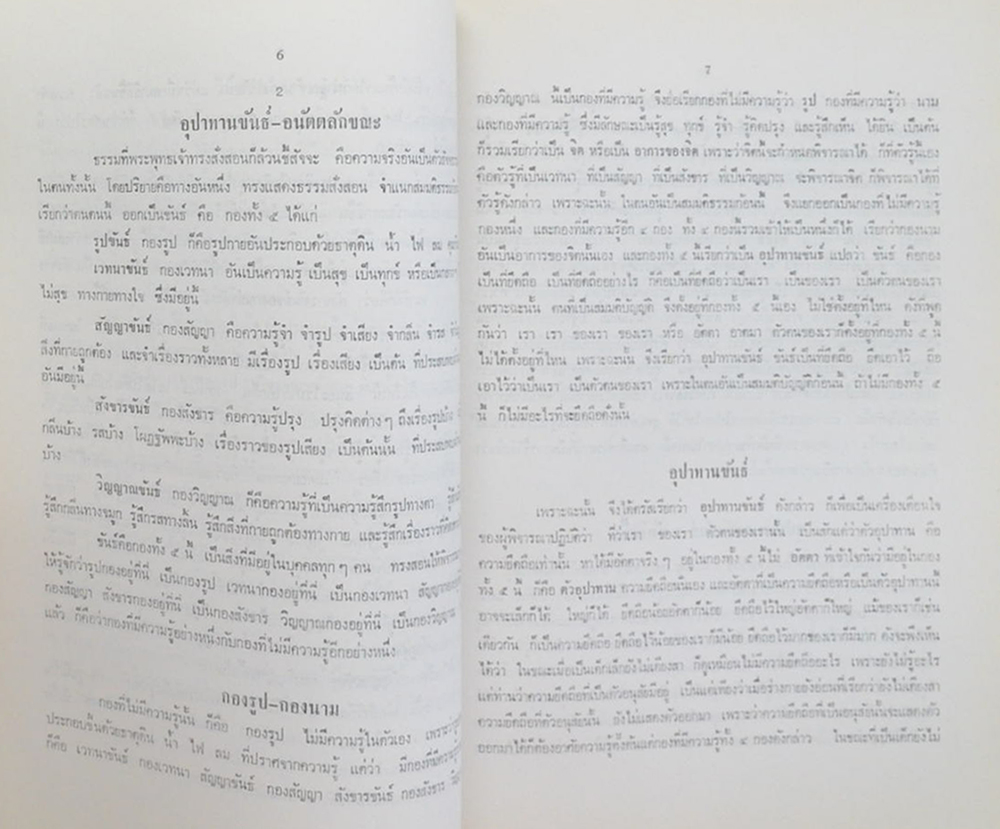 6
2
อุปาทานขันธ์-อนัตตลักขณะ
ธรรมที่พระพุทธเจ้าทรงสั่งสอนก็ล้วนชี้สัจจะ คือความจริงอันเป็นตัว
ในตนทั้งนั้น โดยปริยายคือทางอันหนึ่ง ทรงแสดงธรรมสั่งสอน จำแนกสมมติธรรม
เรียกว่าตนตนนี้ ออกเป็นขันธ์ คือ กองทั้ง ๕ ได้แก่
รูปขันธ์ กองรูป ก็คือรูปกายอันประกอบด้วยธาตุดิน น้ำ ไฟ ลม
เวทนาขันธ์ กองเวทนา อันเป็นความรู้ เป็นสุข เป็นทุกข์ หรือเป็นกลาง
ไม่สุข ทางกายทางใจ ซึ่งมีอยู่นี้
สัญญาขันธ์ กองสัญญา คือความรู้จำ จำรูป จำเสียง จำกลิ่น จำรส
สิ่งที่กายถูกต้อง และจำเรื่องราวทั้งหลาย มีเรื่องรูป เรื่องเสียง เป็นต้น ที่ประสบ
อันมีอยู่นี้
สังขารขันธ์ กองสังขาร คือความรู้ปรุง ปรุงคิดต่างๆ ถึงเรื่องรูปบ้าง
กลิ่นบ้าง รสบ้าง โผฏฐัพพะบ้าง เรื่องราวของรูปเสียง เป็นต้นนั้น ที่ประสบ
บ้าง
วิญญาณขันธ์ กองวิญญาณ ก็คือความรู้ที่เป็นความรู้สึกรูปทางตา
รู้สึกกลิ่นทางจมูก รู้สึกรสทางลิ้น รู้สึกสิ่งที่กายถูกต้องทางกาย และรู้สึกเรื่องราว
ขันธ์คือกองทั้ง ๕ นี้ เป็นสิ่งที่มีอยู่ในบุคคลทุกๆ คน ทรงสอนให้พิจารณา
ให้รู้จักว่ารูปกองอยู่ที่นี่ เป็นกองรูป เวทนากองอยู่ที่นี่ เป็นกองเวทนา สัญญากองอยู่
กองสัญญา สังขารกองอยู่ที่นี่ เป็นกองสังขาร วิญญาณกองอยู่ที่นี่ เป็นกองวิญญาณ
แล้ว ก็คือว่ากองที่มีความรู้อย่างหนึ่งกับกองที่ไม่มีความรู้อีกอย่างหนึ่ง
กองรูป-กองนาม
กองที่ไม่มีความรู้นั้น ก็คือ กองรูป ไม่มีความรู้ในตัวเอง เพราะว่า
ประกอบขึ้นด้วยธาตุดิน น้ำ ไฟ ลม ที่ปราศจากความรู้ แต่ว่า มีกองที่มีความรู้
ก็คือ เวทนาขันธ์ กองเวทนา สัญญาขันธ์ กองสัญญา สังขารขันธ์ กองสังขาร
7
กองวิญญาณ นี้เป็นกองที่มีความรู้ จึงย่อเรียกกองที่ไม่มีความรู้ว่า รูป กองที่มีความรู้ว่า นาม
และกองที่มีความรู้ ซึ่งมีลักษณะเป็นรู้สุข ทุกข์ รู้จำ รู้คิดปรุง และรู้สึกเห็น ได้ยิน เป็นต้น
ก็รวมเรียกว่าเป็น จิต หรือเป็น อาการของจิต เพราะว่าจิตนี้จะกำหนดพิจารณาได้ ก็ที่ตัวรู้นี้เอง
คือตัวรู้ที่เป็นเวทนา ที่เป็นสัญญา ที่เป็นสังขาร ที่เป็นวิญญาณ จะพิจารณาจิต ก็พิจารณาได้ที่
ตัวรู้ดังกล่าว เพราะฉะนั้น ในตนอันเป็นสมมติธรรมก้อนนี้ จึงแยกออกเป็นกองที่ไม่มีความรู้
กองหนึ่ง และกองที่มีความรู้อีก ๔ กอง ทั้ง ๔ กองนี้รวมเข้าให้เป็นหนึ่งก็ได้ เรียกว่ากองนาม
อันเป็นอาการของจิตนั้นเอง และกองทั้ง ๕ นี้เรียกว่าเป็น อุปาทานขันธ์ แปลว่า ขันธ์ คือกอง
เป็นที่ยึดถือ เป็นที่ยึดถืออย่างไร ก็คือเป็นที่ยึดถือว่าเป็นเรา เป็นของเรา เป็นตัวตนของเรา
เพราะฉะนั้น ตนที่เป็นสมมติบัญญัติ จึงตั้งอยู่ที่กองทั้ง ๕ นี้เอง ไม่ใช่ตั้งอยู่ที่ไหน ดังที่พูด
กันว่า เรา เรา ของเรา ของเรา หรือ อัตตา อาตมา ตัวตนของเราก็ตั้งอยู่ที่กองทั้ง ๕ นี้
ไม่ได้ตั้งอยู่ที่ไหน เพราะฉะนั้น จึงเรียกว่า อุปาทานขันธ์ ขันธ์เป็นที่ยึดถือ ยึดเอาไว้ ถือ
เอาไว้ว่าเป็นเรา เป็นตัวตนของเรา เพราะในตนอันเป็นสมมติบัญญัติก้อนนี้ ถ้าไม่มีกองทั้ง ๕
นี้ ก็ไม่มีอะไรที่จะยึดถือดังนั้น
อุปาทานขันธ์
เพราะฉะนั้น จึงได้ตรัสเรียกว่า อุปาทานขันธ์ ดังกล่าว ก็เพื่อเป็นเครื่องเตือนใจ
ของผู้พิจารณาปฏิบัติว่า ที่ว่าเรา ของเรา ตัวตนของเรานั้น เป็นสักแต่ว่าตัวอุปาทาน คือ
ความยึดถือเท่านั้น หาได้มีอัตตาจริงๆ อยู่ในกองทั้ง ๕ นี้ไม่ อัตตา ที่เข้าใจกันว่ามีอยู่ในกอง
ทั้ง ๕ นี้ ก็คือ ตัวอุปาทาน ความยึดถือนี้เอง และอัตตาที่เป็นความยึดถือหรือเป็นตัวอุปาทานนี้
อาจจะเล็กก็ได้ ใหญ่ก็ได้ ยึดถือน้อยอัตตาก็น้อย ยึดถือไว้ใหญ่อัตตาก็ใหญ่ แม้ของเราก็เช่น
เดียวกัน ก็เป็นความยึดถือ ยึดถือไว้น้อยของเราก็มีน้อย ยึดถือไว้มากของเราก็มีมาก ดังจะพึงเห็น
ได้ว่า ในขณะเมื่อเป็นเด็กเล็กยังไม่เดียงสา ก็ดูเหมือนไม่มีความยึดถืออะไร เพราะยังไม่รู้อะไร
แต่ท่านว่าความยึดถือที่เป็นตัวอนุสัยมีอยู่ เป็นแต่เพียงว่าเมื่อร่างกายยังอ่อนที่เรียกว่ายังไม่เดียงสา
ความยึดถือที่ตัวอนุสัยนั้น ยังไม่แสดงตัวออกมา เพราะว่าความยึดถือที่เป็นอนุสัยนั้นจะแสดงตัว
ออกมาได้ก็ต้องอาศัยความรู้ตั้งต้นแต่กองที่มีความรู้ทั้ง ๔ กองดังกล่าว ในขณะที่เป็นเด็กยังไม่